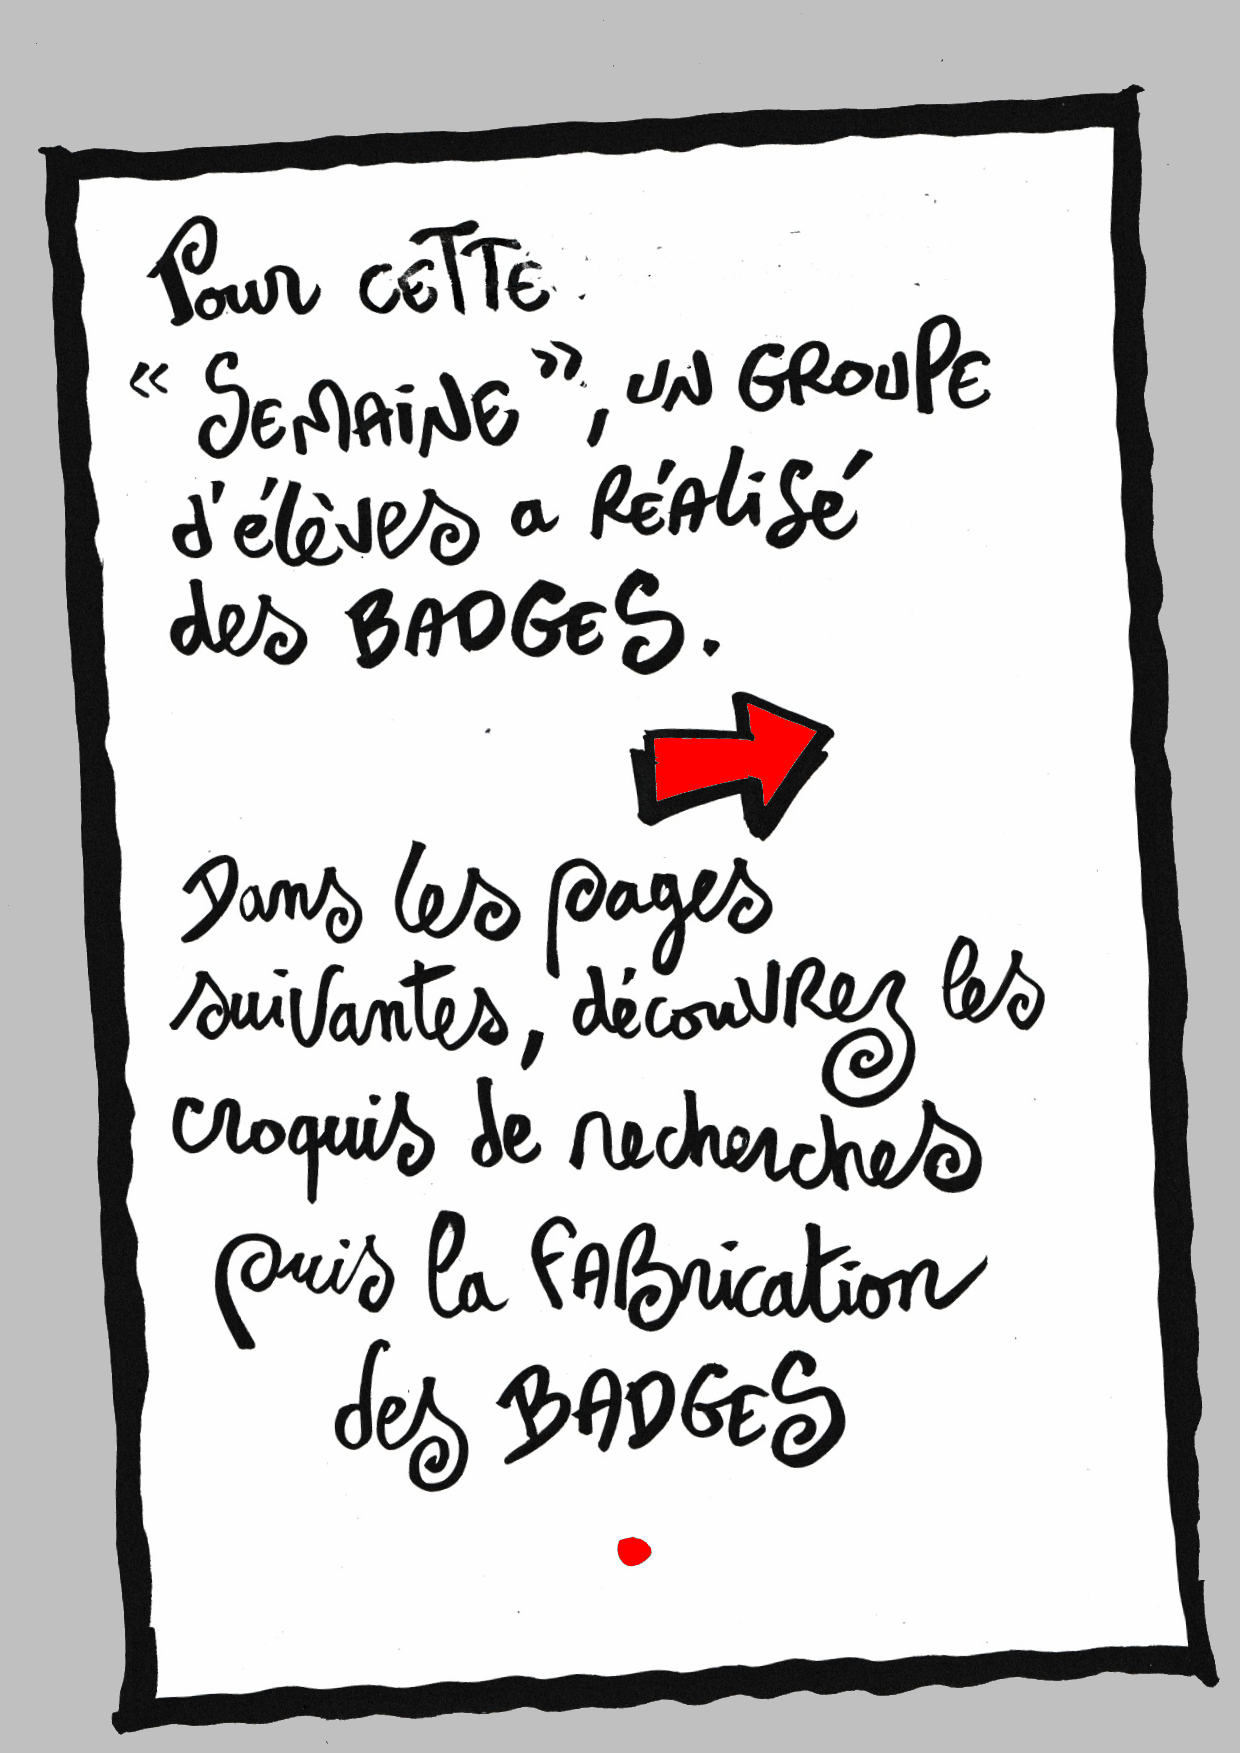 Pour CETTE
« SEMAINE », UN GROUPE
d'élèves a RÉALISÉ
des BADGES.
Dans les pages
suivantes, découvrez les
croquis de recherches
puis la FABrication
des BADGES
.